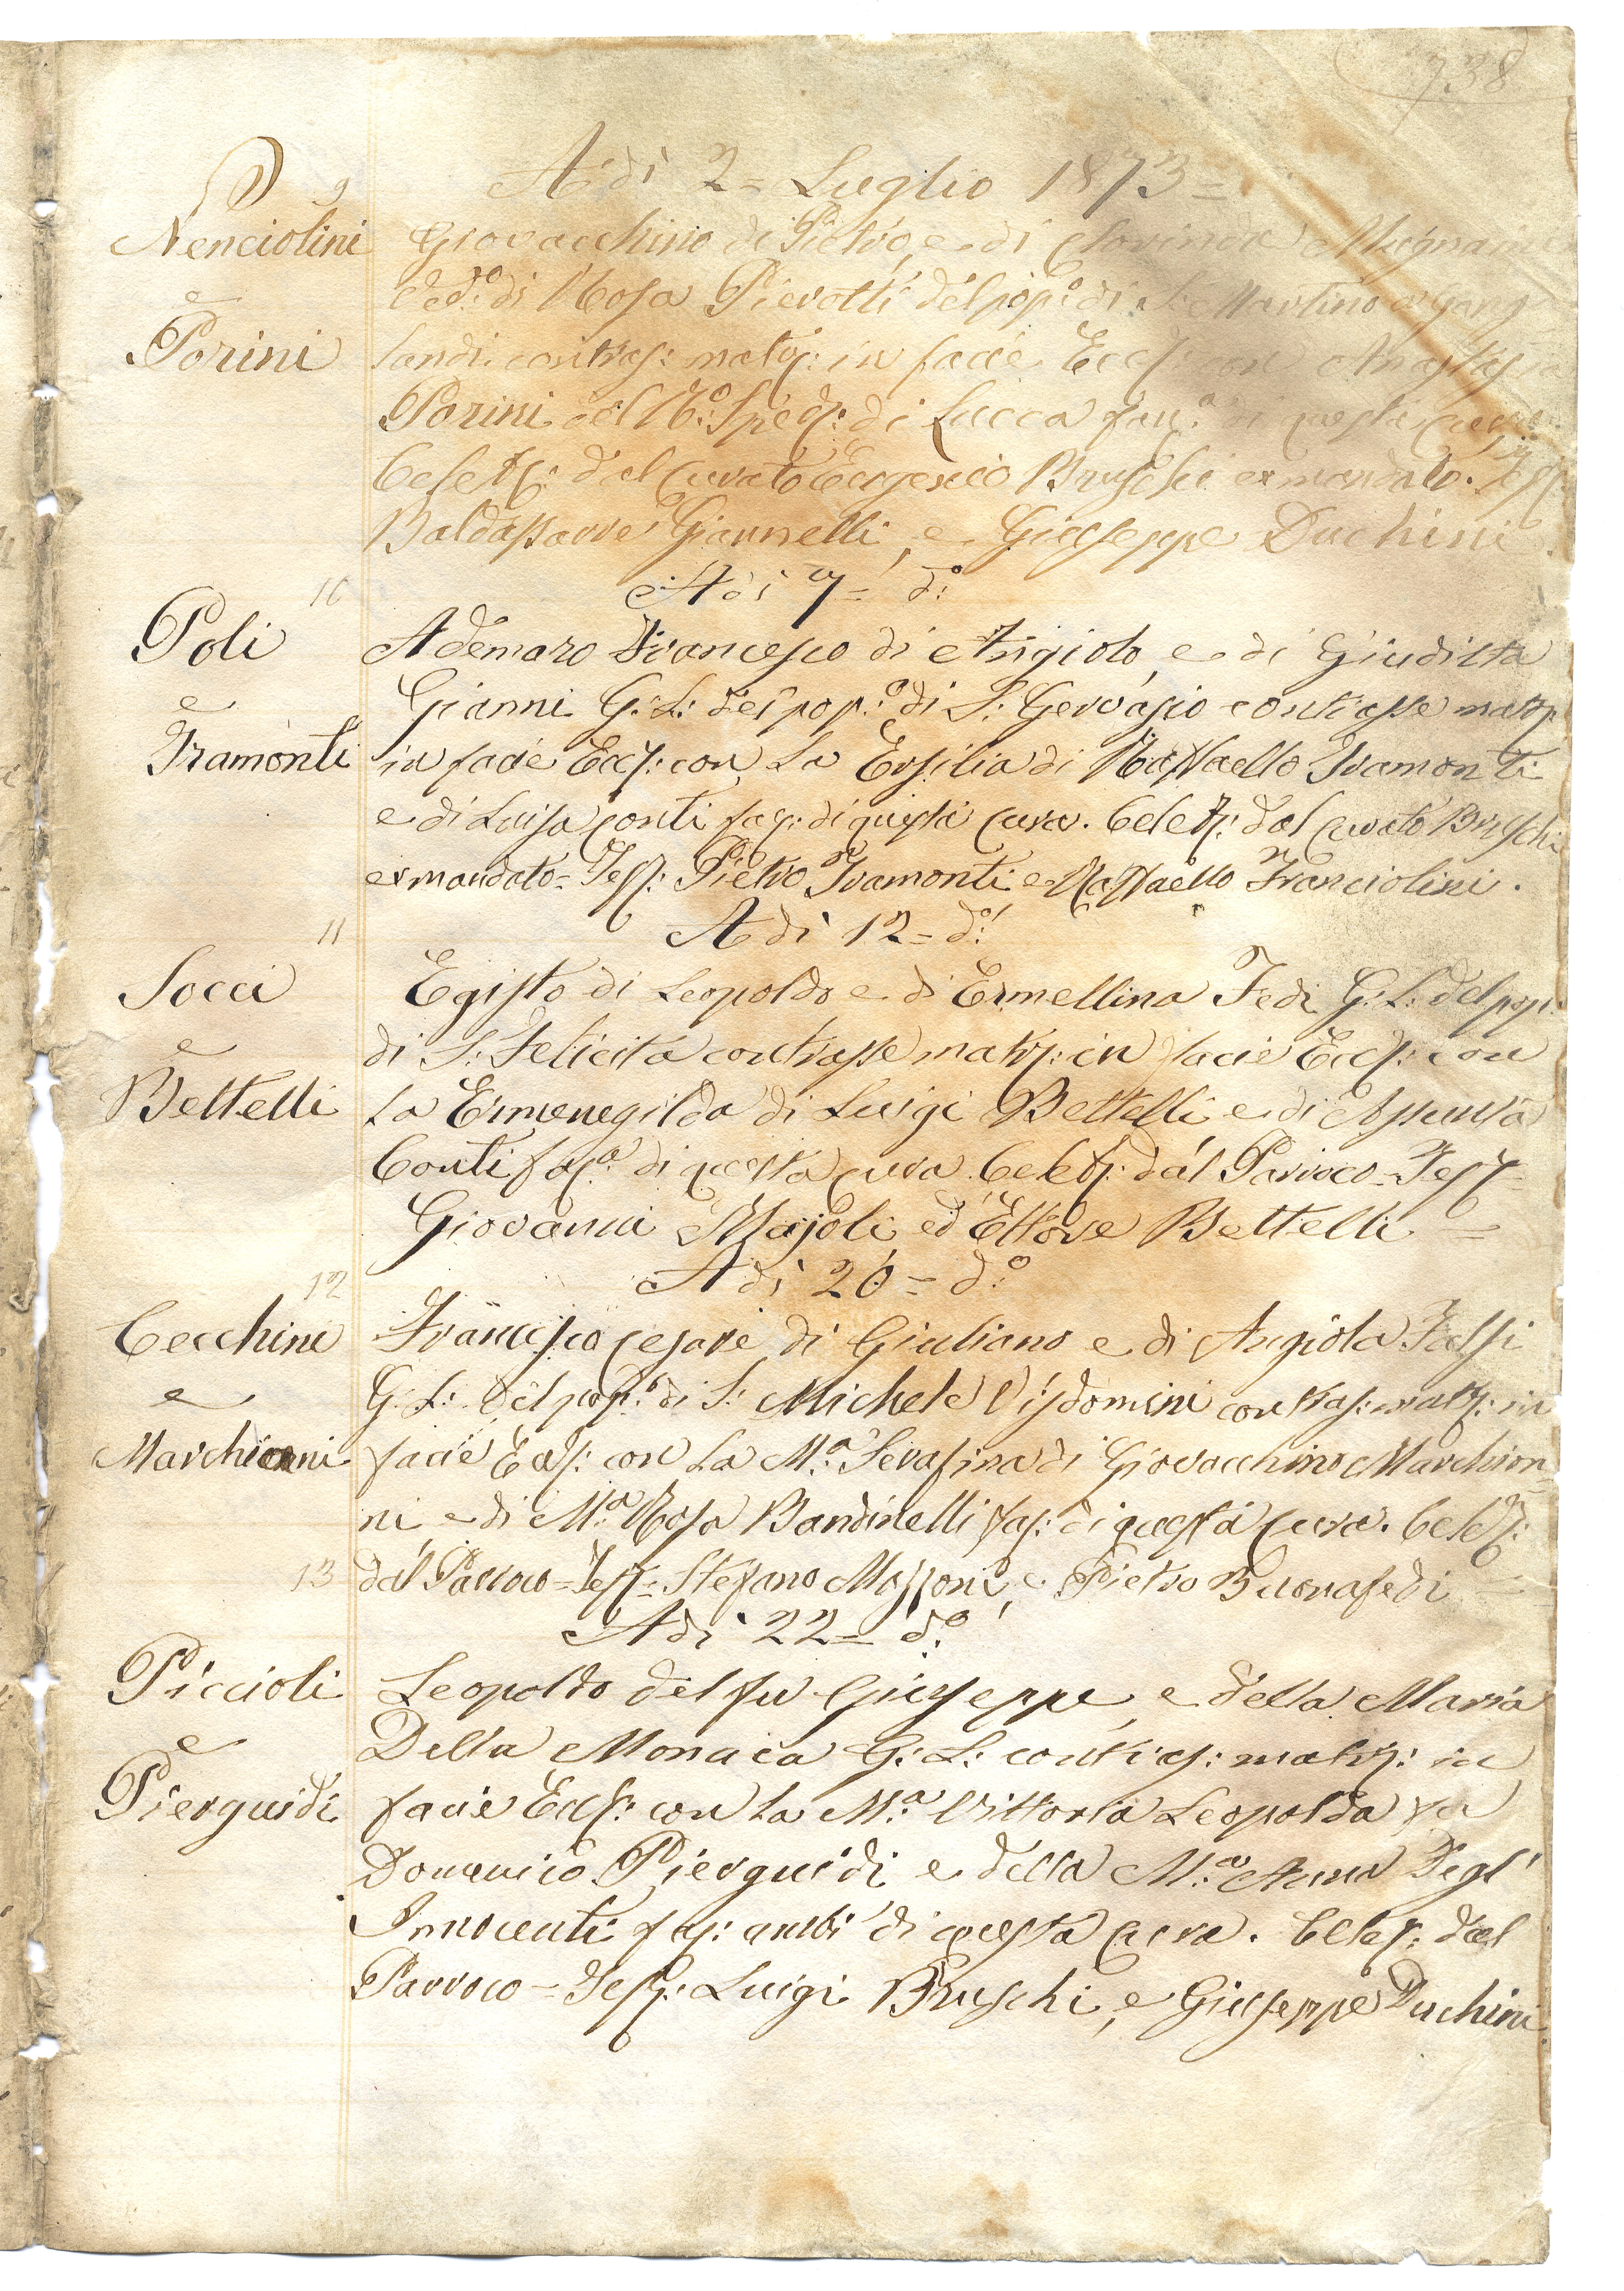 738
A dì 2= Luglio 1873=
9
Nenciolini Giovacchino di Pietro, e di Clorinda
e Ved:º di Rosa Pierotti del pop:º di S: Martino a Gang
Porini landi contras: matrj: in facie Eccl: con Anastasia
Porini del R:º Sped: di Lucca di questa Cura
Celebr: dal Curato Eugenio Bruschi ex mandato. Test:
Baldassarre Giannelli, e Giuseppe Duchini.
A dì 7= d:º
10
Poli Ademaro Francesco di Angiolo, e di Giuditta
e Gianni G: L: del pop:º di S: Gervasio contrasse matrj:
Tramonti in facie Eccl: con La Ersilia di Raffaello Tramonti
e di Luisa Conti faz: di questa Cura. Celebr: dal Curato Bruschi
ex mandato= Test: Pietro Tramonti e Raffaello Franciolini.
A dì 12= d:º
11
Socci Egisto di Leopoldo e di Ermellina Fedi G: L: del pop:
e di S: Felicita contrasse matrj: in facie Eccl: con
Bettelli La Ermenegilda di Luigi Bettelli e di Assunta
Conti faz:ª di questa cura. Celebr: dal Parroco= Test=
Giovanni Majoli, ed Ettore Bettelli =
A dì 20= d:º
12
Cecchini Francesco Cesare di Giuliano e di Angiola Falsi
e G: L: del pop:º di S: Michele Visdomini contras: matrj: in
Marchionni facie Eccl: con La M:ª Serafina di Giovacchino Marchion=
ni, e di M:ª Rosa Bandinelli faz: di questa Cura. Celebr:
13 dal Parroco= Test= Stefano Mozzoni, e Pietro Buonafedi =
A dì 22= d:º
Piccioli Leopoldo del fu Giuseppe, e della Maria
e Della Monaca G: L: contras: matrj: in
Pierguidi facie Eccl: con La M:ª Vittoria Leopolda fu
Domenico Pierguidi e della M:ª Anna Degl'
Innocenti faz: ambi di questa Cura. Celebr: dal
Parroco= Test: Luigi Bruschi, e Giuseppe Duchini.